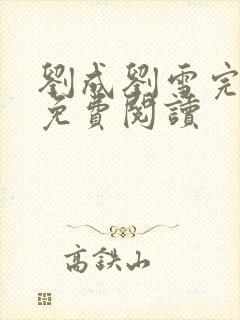 劉成劉雪完
免費閱讀
高鉄山